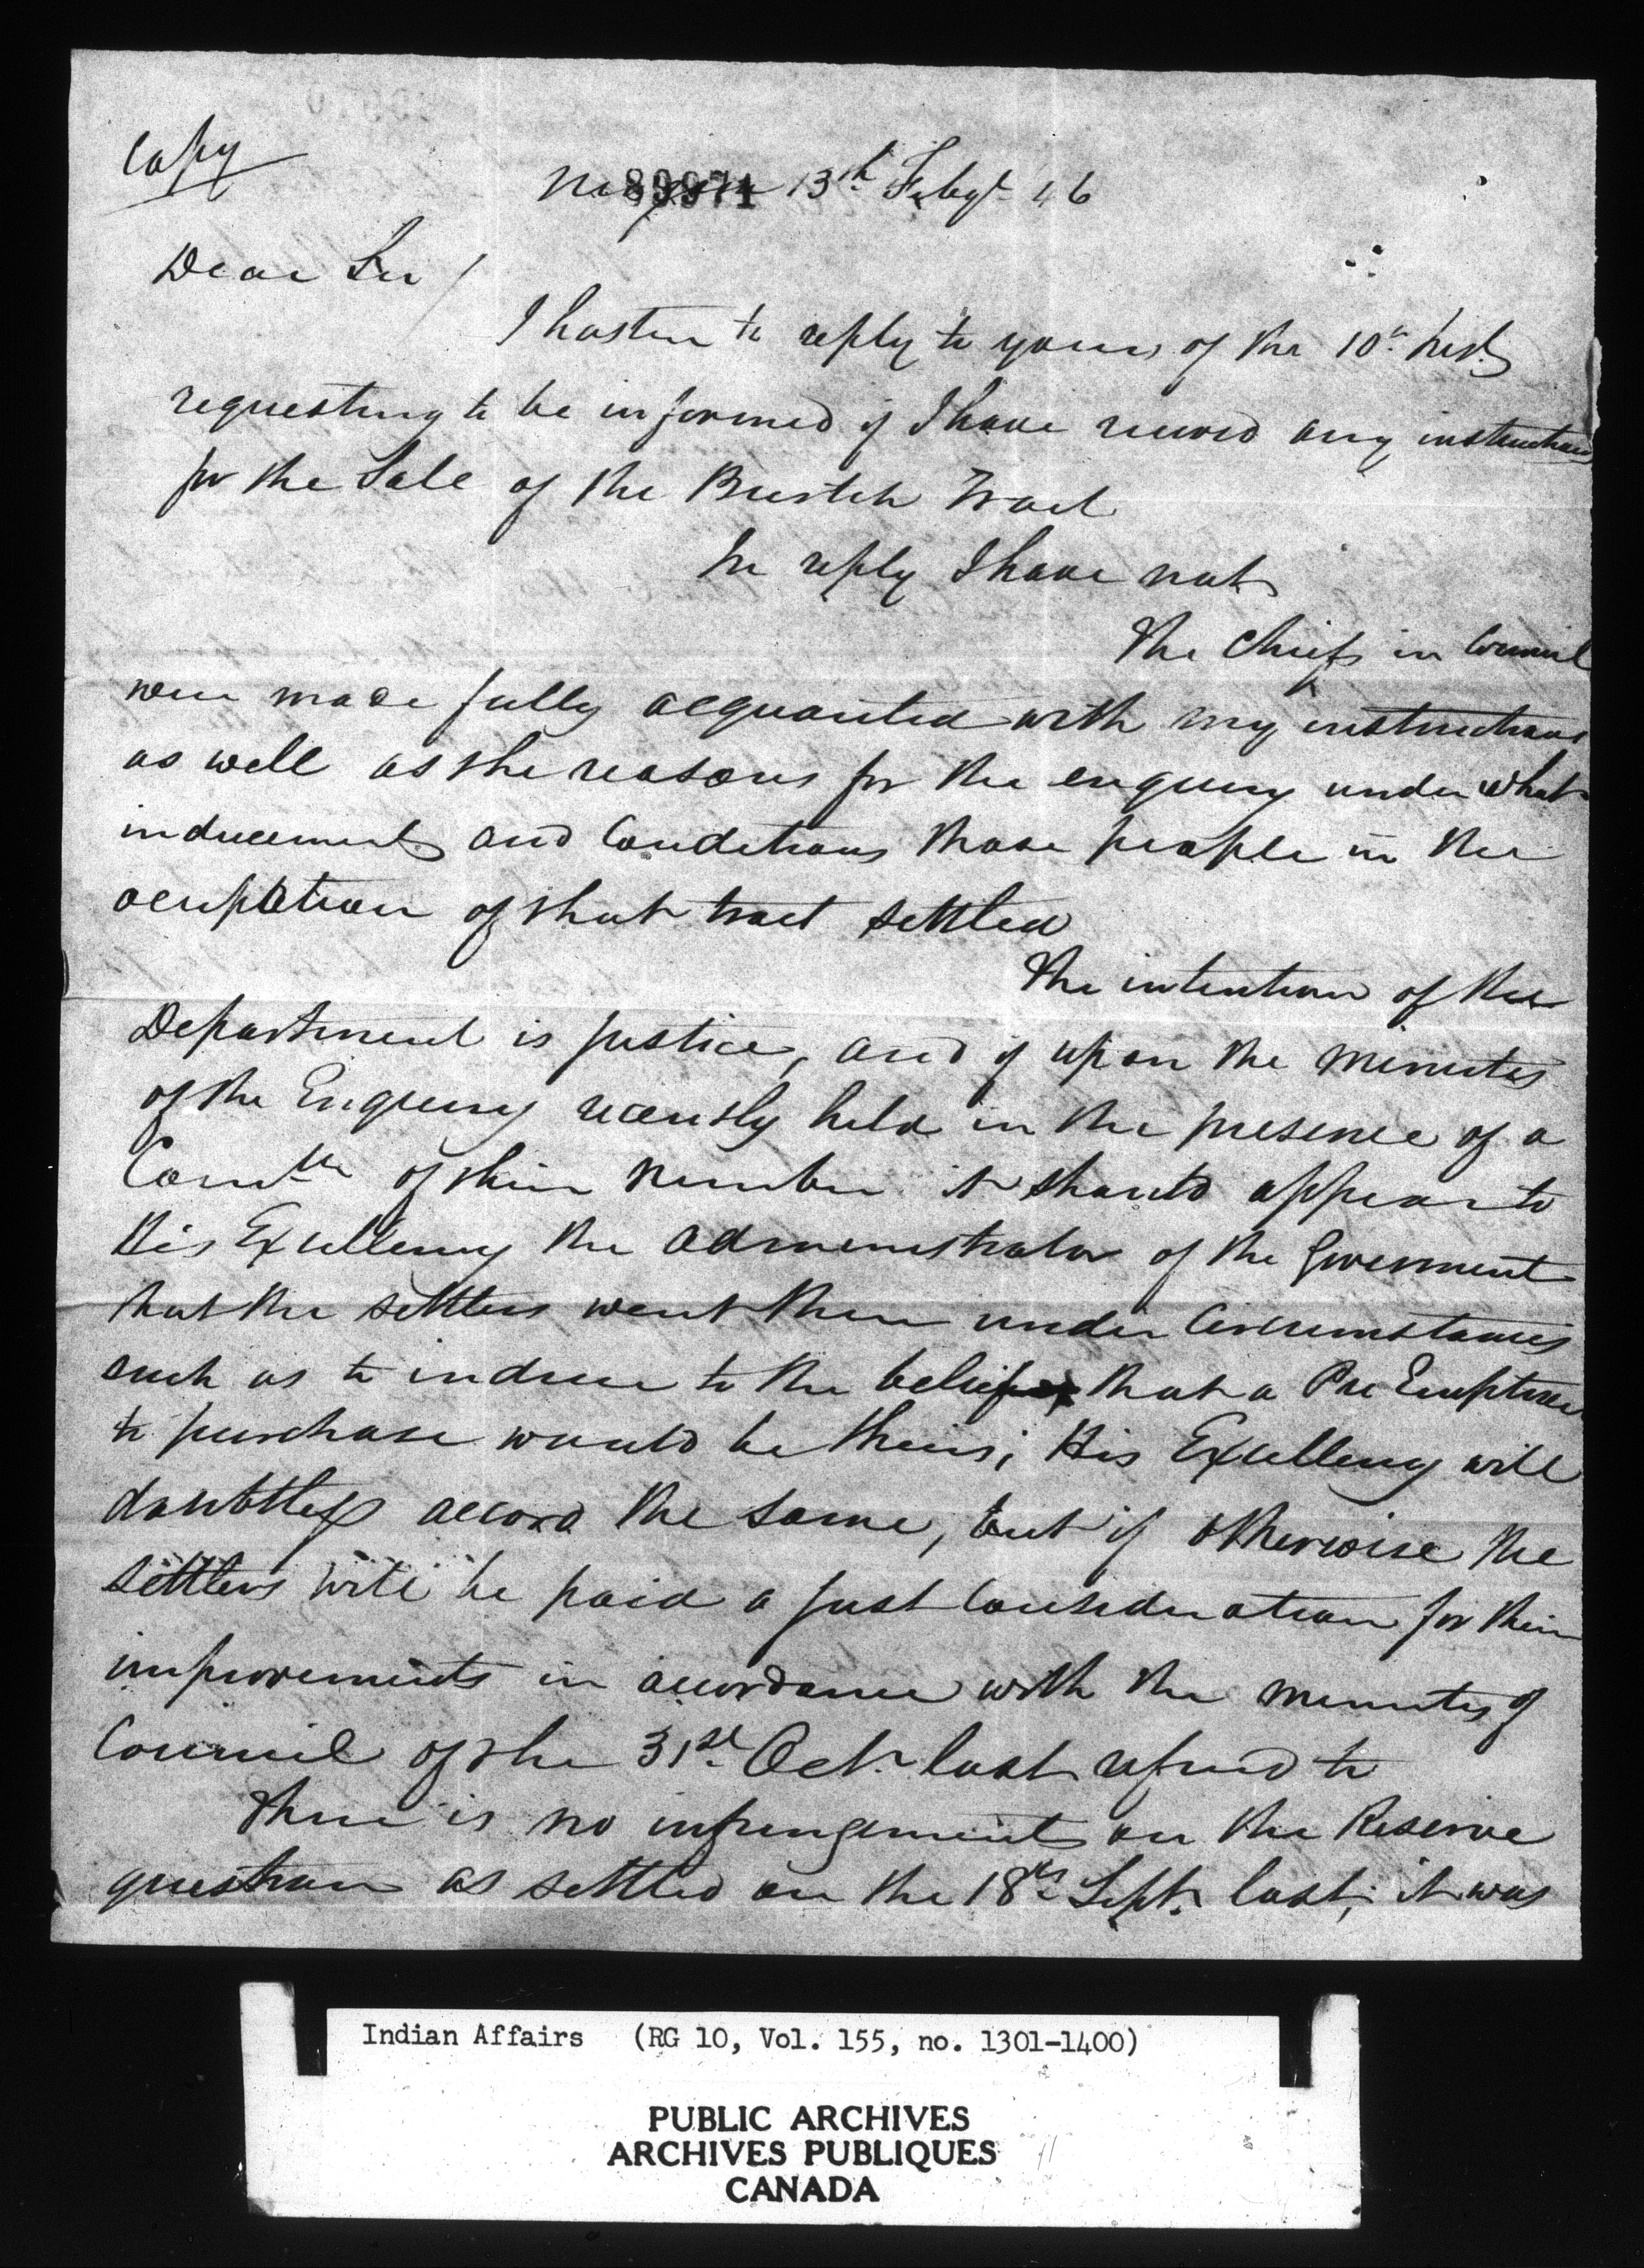 Copy
89971 13th Feby 46
Dear Sir /
I hasten to reply to yours of the 10th Inst
requesting to be informed if I have received any instructions
for the Sale of the Burtch Tract
In reply I have not
The Chiefs in Council
were made fully acquanted with my instructions
as well as the reasons for the enquiry under what
inducements and Conditions those people in the
ocupation of that tract settled
The intention of the
Department is justice, and if upon the minutes
of the Enquiry recently held in the presence of a
Comtte of their number it should appear to
His Excellency the administrator of the Government
that the settlers went there under Circumstances
such as to induce to the belief that a Pre Emption
to purchase would be theirs; His Excellency will
doubtless accord the same, but if otherwise the
settlers will be paid a just Consideration for their
improvements in accordance with the minutes of
Council of the 31st Oct. last refered to
There is no infringement on the Reserve
question as settled on the 18th Sept. last, it was
Indian Affairs (RG 10, Vol. 155, no. 1301-1400)
PUBLIC ARCHIVES
ARCHIVES PUBLIQUES
CANADA